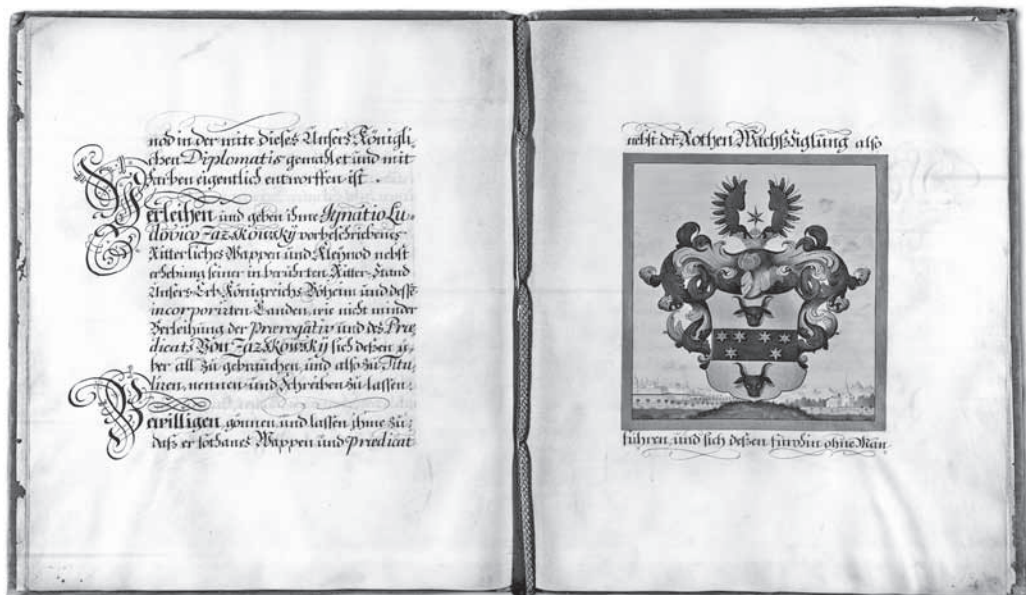 nod in der mitte dieses Unsers Königli-
chen Diplomatis gemahlet und mit
Farben eigentlich entworffen ist.
Verleihen und geben ihme Ignatio Lu-
dovico Zazskowsky vorbeschriebenes
Ritterliches Wappen und Kleynod nebst
erhebung seiner in berührten Ritter-Stand
Unsers Erb-Königreichs Böheim und desse
incorporirten Landen, wie nicht minder
Verleihung der Prærogativ und des Præ
dicats Von Zazskowsky sich deßen ü-
ber all zu gebrauchen, und also zu Titu-
liren, nennen und Schreiben zu lassen.
Bewilligen gönnen und lassen ihme zu,
daß er sothanes Wappen und Prædicat
nebst der Rothen Wachs Siglung also
führen, und sich deßen fürohin ohne Män